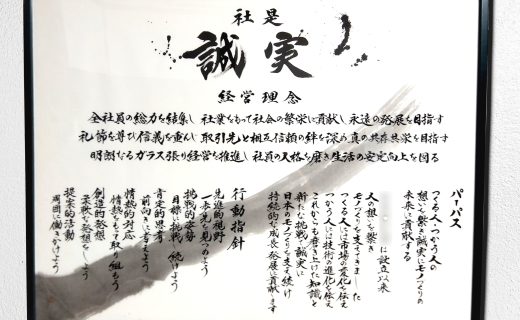 社是
誠実
経営理念
全社員の総力を結集し 社業をもって社会の繁栄に貢献し 永遠の発展を目指す
礼節を尊び信義を重んじ 取引先と相互信頼の絆を深め 真の共存共栄を目指す
明朗なるガラス張り経営を推進し 社員の人格を磨き生活の安定向上を図る
パーパス
つくる人・つかう人の
想いを繋ぎ誠実にモノづくりの
未来に貢献する
人の想いを繋ぎ
に設立以来
モノづくりを支えてきました
つくる人には市場の変化を伝え
つかう人には技術の進化を伝え
これからも磨き上げた知識と
新たな挑戦で誠実に
日本のモノづくりを支え続け
持続的な成長・発展に貢献します
行動指針
先進的視野
一歩先を見つめよう
挑戦的姿勢
目標に挑戦し続けよう
肯定的思考
前向きに考えよう
情熱的対応
情熱をもって取り組もう
創造的発想
柔軟な発想をしよう
提案的活動
周囲に働きかけよう